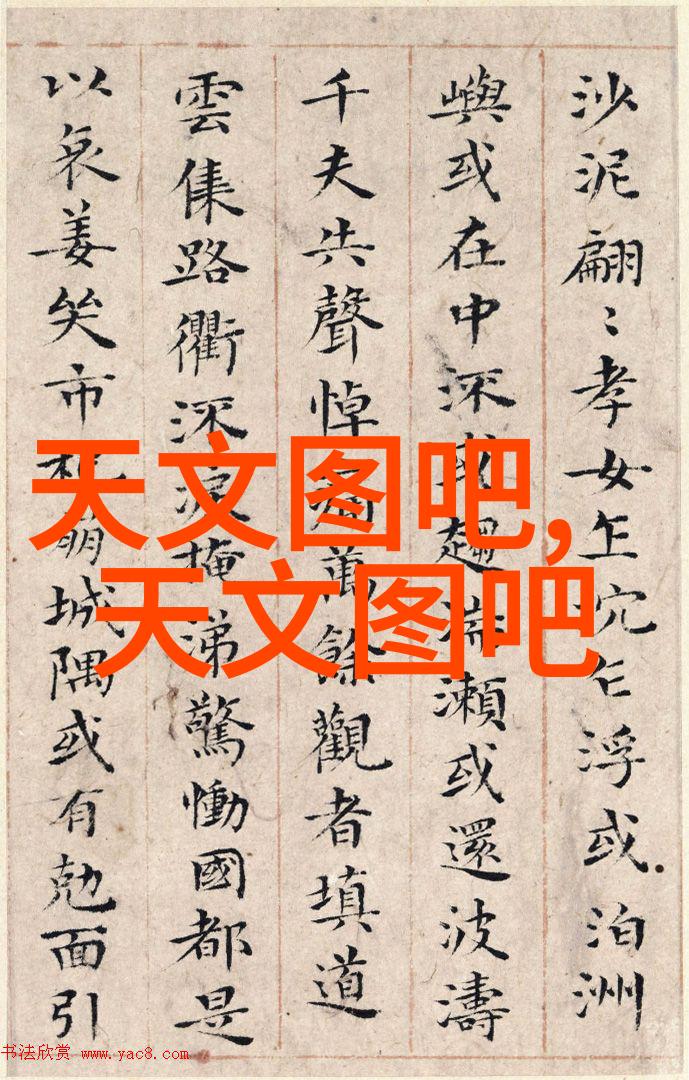 沙泥翩〻孝女乍沉乍浮或泊洲
嶼或在中流或趨湍瀨或還波濤
千夫失聲悼痛萬餘觀者填道
雲集路衢流淚掩涕驚慟國都是
以哀姜哭市杞崩城隅或有勊面引
天文图吧,
天文图吧
书法欣赏 www.yac8.com